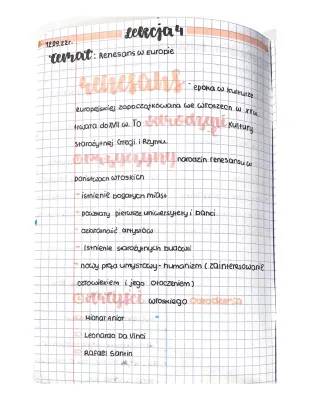 12.09.22r.
Lekcja 4
temat: Renesans w Europie
renesans - epoka w kulturze
europejskiej zapoczątkowana we Włoszech w XIV w.
trwała do XVII w. To odrodzenie kultury
starożytnej Grecji i Rzymu.
przyczyny narodzin renesansu w
państwach włoskich
- istnienie bogatych miast
- powstały pierwsze uniwersytety i banki
- działalność artystów
- istnienie starożytnych budowli
- nowy prąd umysłowy - humanizm (zainteresowanie
człowiekiem i jego otoczeniem)
artyści włoskiego odrodzenia
Michał Anioł
Leonardo Da Vinci
Rafael Santin